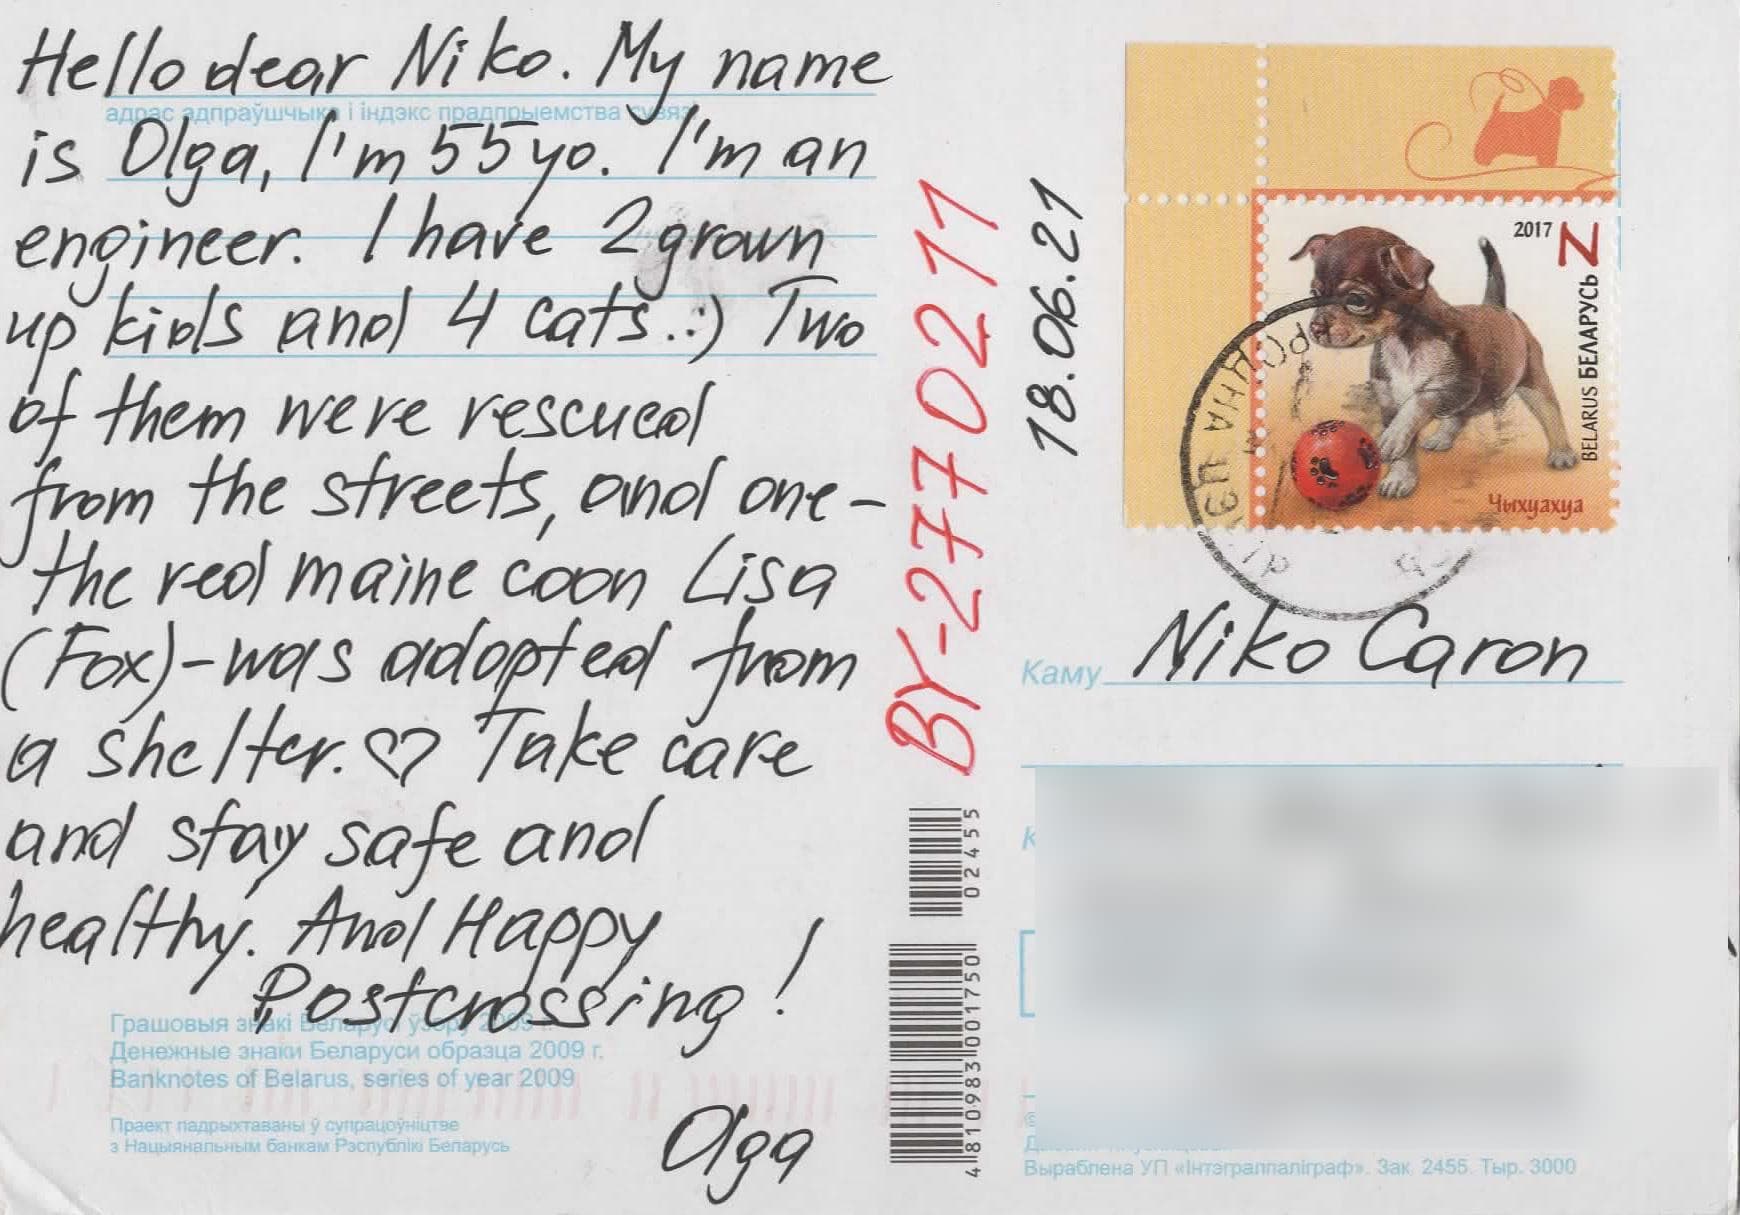 Hello dear Niko. My name
адрас адпраўшчыка і індэкс прадпрыемства сувязі
is Olga, I'm 55 yo. I'm an
engineer. I have 2 grown
up kids and 4 cats. :) Two
of them were rescued
from the streets, and one -
the red maine coon Lisa
(Fox) - was adopted from
a shelter. ♡ Take care
and stay safe and
healthy. And Happy
Postcrossing!
Грашовыя знакі Беларусі ўзору 2009 г.
Денежные знаки Беларуси образца 2009 г.
Banknotes of Belarus, series of year 2009
Праект падрыхтаваны ў супрацоўніцтве
з Нацыянальным банкам Рэспублікі Беларусь
Olga
BY-2770211
18.06.21
02455
4810983001750
2017 Z
BELARUS БЕЛАРУСЬ
Чыхуахуа
Каму Niko Caron
Выраблена УП «Інтэгралпаліграф». Зак. 2455. Тыр. 3000